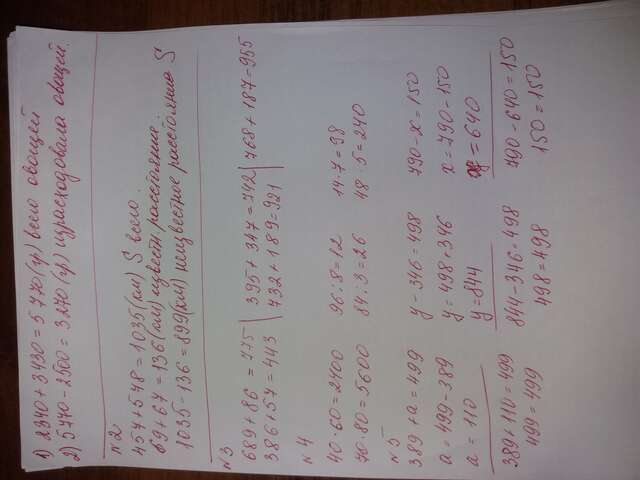 1) 2340 + 3430 = 5770 (гр) всего овощей
2) 5770 - 2500 = 3270 (гр) израсходовала овощей.
№2
457 + 578 = 1035 (км) S всего.
69 + 67 = 136 (км) известн. расстояние.
1035 - 136 = 899 (км) неизвестное расстояние S
№3
689 + 86 = 775 395 + 347 = 742 768 + 187 = 955
386 + 57 = 443 732 + 189 = 921
№4
40 · 60 = 2400 96 : 8 = 12 14 · 7 = 98
70 · 80 = 5600 84 : 3 = 26 48 · 5 = 240
№5
389 + a = 499 y - 346 = 498 790 - x = 150
a = 499 - 389 y = 498 + 346 x = 790 - 150
a = 110 y = 844 x = 640
389 + 110 = 499 844 - 346 = 498 790 - 640 = 150
499 = 499 498 = 498 150 = 150